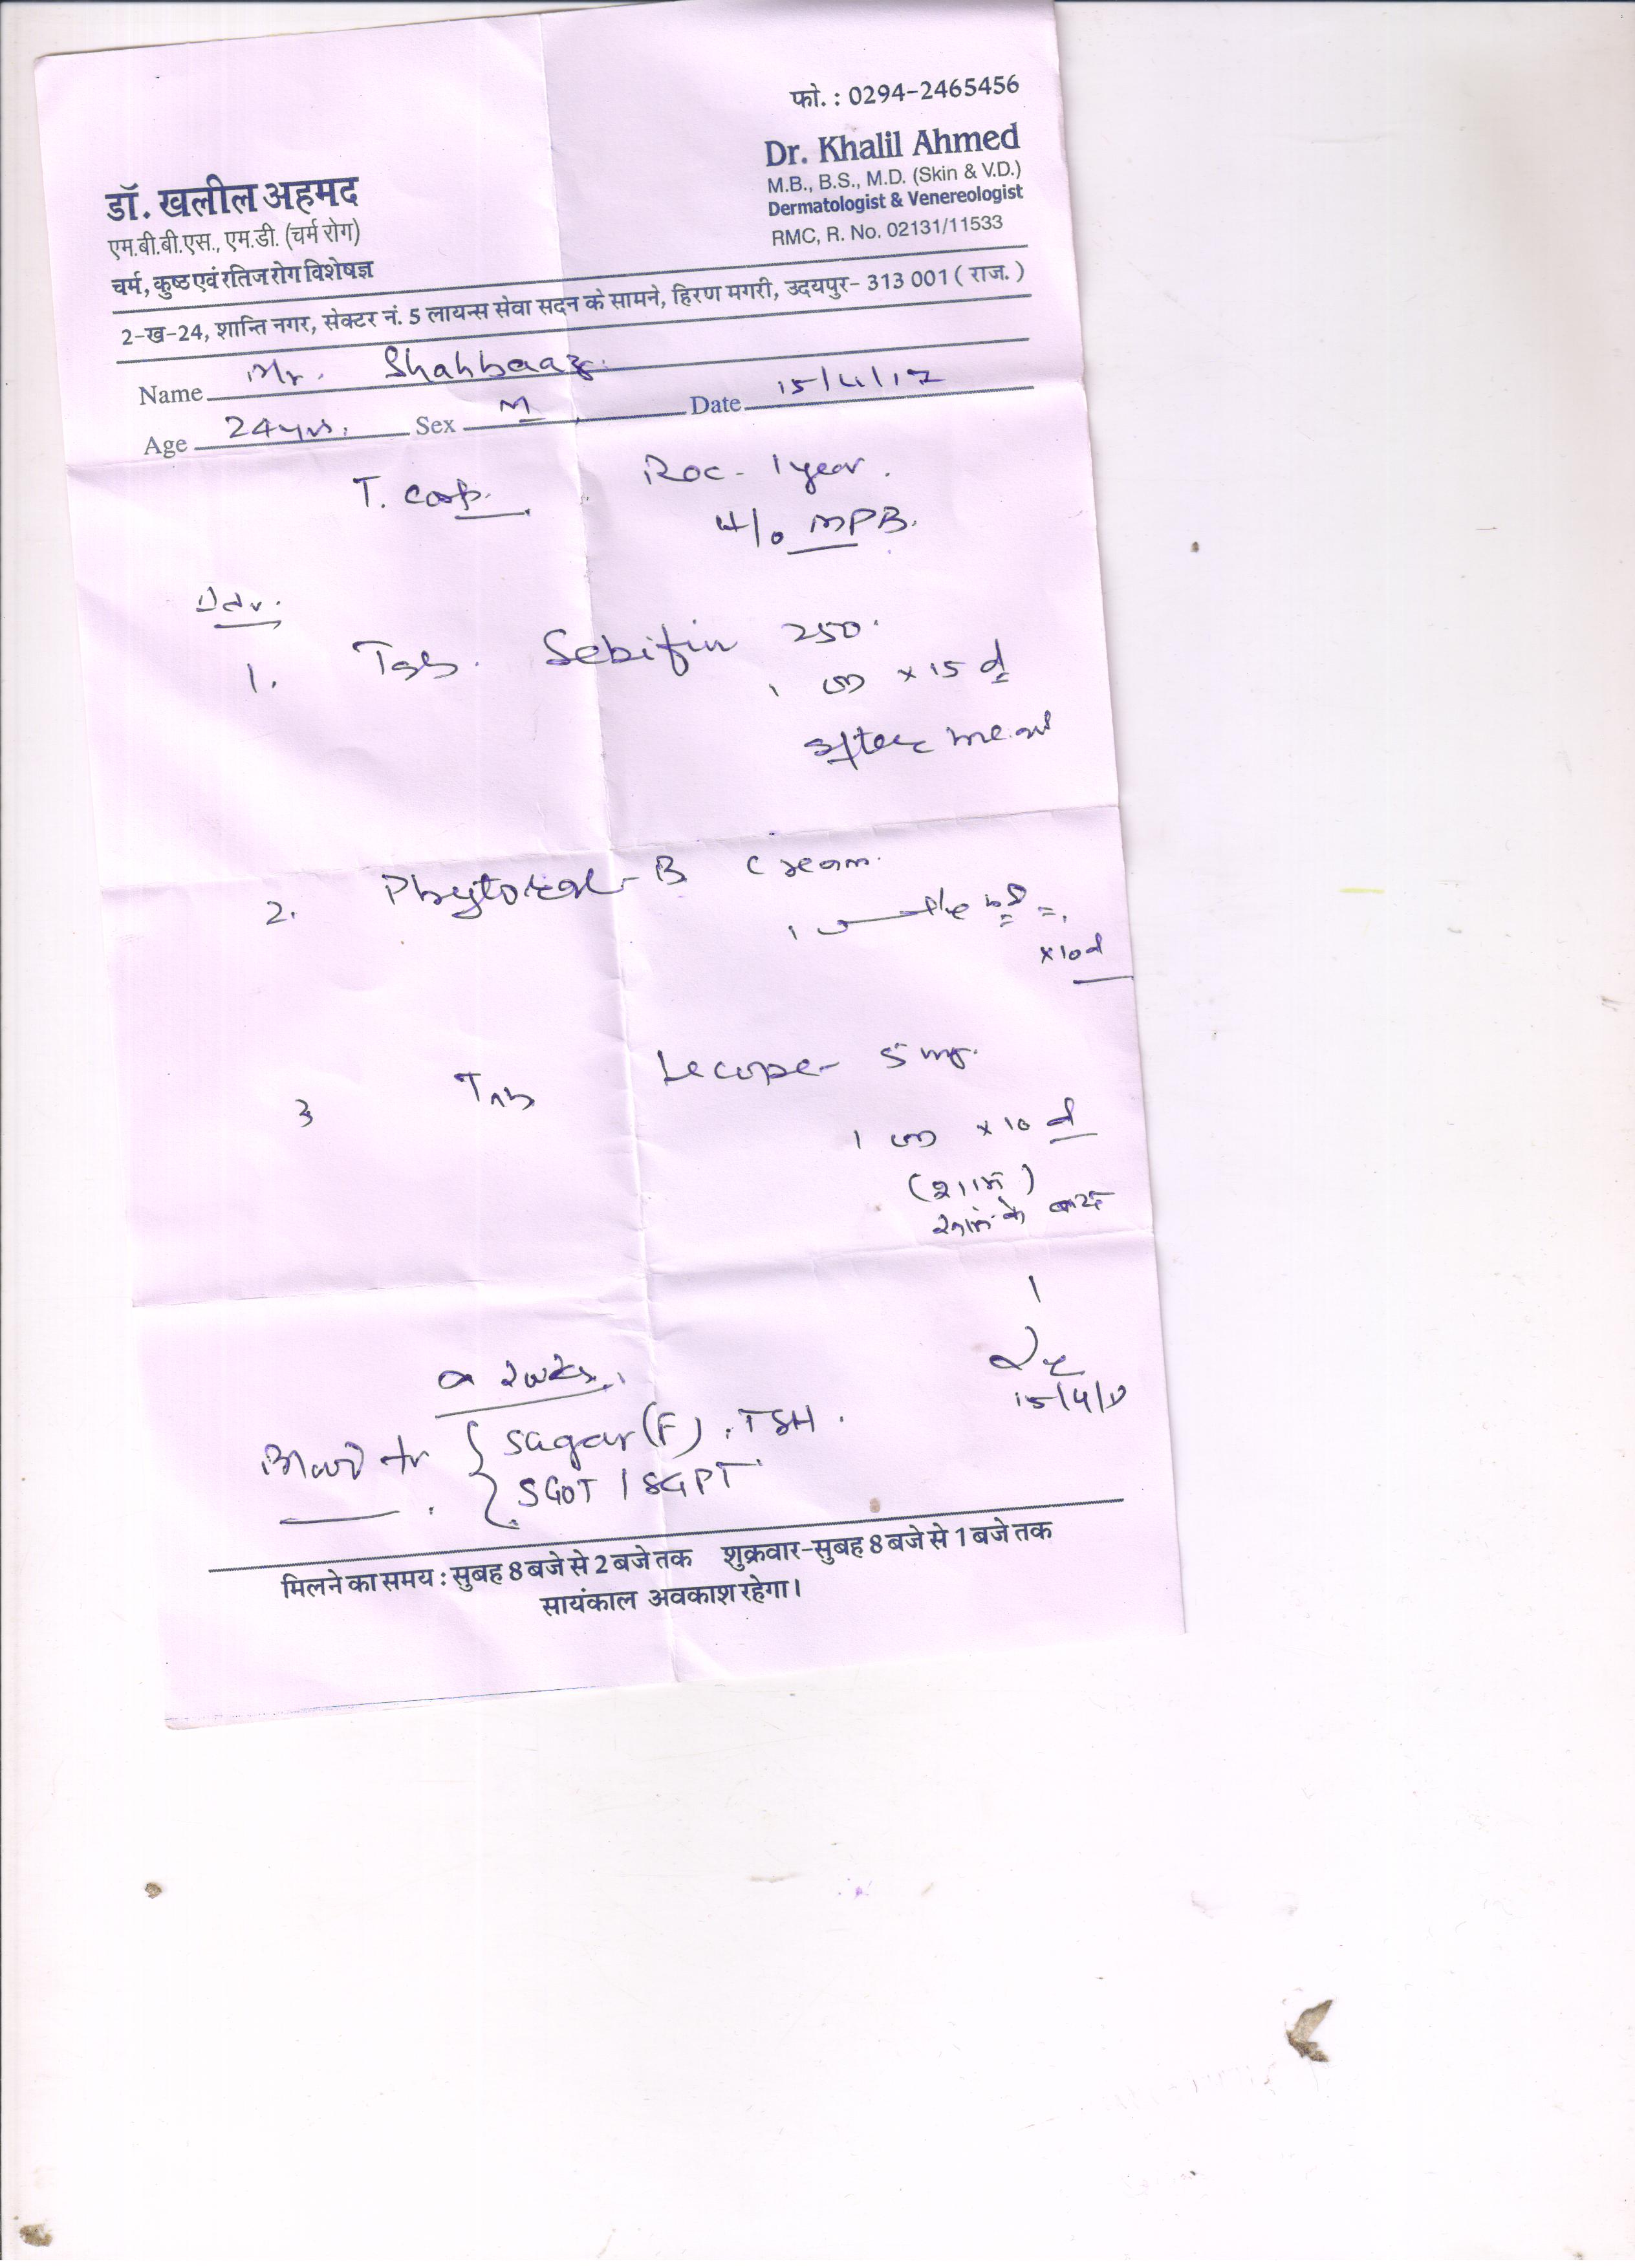 फो. : 0294-2465456
Dr. Khalil Ahmed
M.B., B.S., M.D. (Skin & V.D.)
Dermatologist & Venereologist
RMC, R. No. 02131/11533
डॉ. खलील अहमद
एम.बी.बी.एस., एम.डी. (चर्म रोग)
चर्म, कुष्ठ एवं रतिज रोग विशेषज्ञ
2-ख-24, शान्ति नगर, सेक्टर नं. 5 लायन्स सेवा सदन के सामने, हिरण मगरी, उदयपुर- 313 001 ( राज. )
Name Mr. Shahbaaz.
Age 24 yrs. Sex M Date 15/4/17
T. Corp. Rec - 1 year.
H/o MPB.
Adv.
1. Tab. Sebifin 250.
1 OD x 15 d
after meal
2. Phytoral-B Cream.
x 10d
3 Tab Lecope 5 mg.
1 OD x 10 d
(शाम)
खाने के बाद
2 wks.
15/4/17
Blood for { Sugar (F), TSH.
SGOT / SGPT
मिलने का समय : सुबह 8 बजे से 2 बजे तक शुक्रवार-सुबह 8 बजे से 1 बजे तक
सायंकाल अवकाश रहेगा।